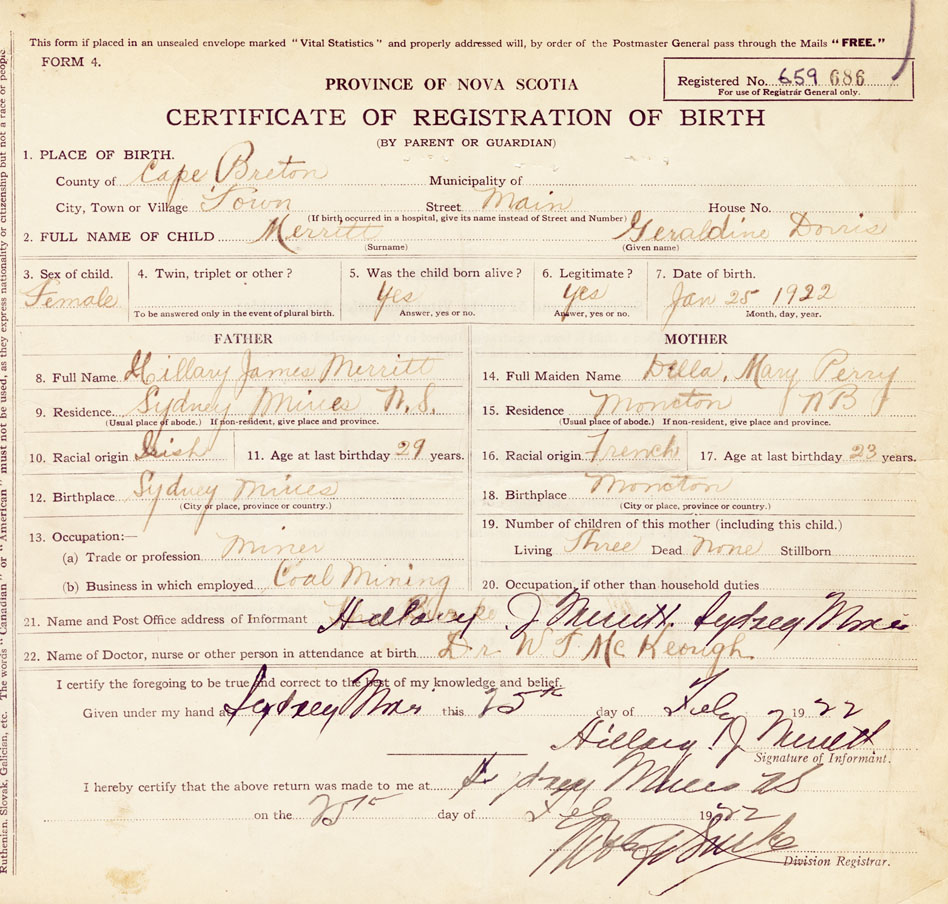 This form if placed in an unsealed envelope marked "Vital Statistics" and properly addressed will, by order of the Postmaster General pass through the Mails "FREE."
FORM 4.
Registered No. 659 686
For use of Registrar General only.
PROVINCE OF NOVA SCOTIA
CERTIFICATE OF REGISTRATION OF BIRTH
(BY PARENT OR GUARDIAN)
1. PLACE OF BIRTH.
County of Cape Breton Municipality of
City, Town or Village Town Street Main House No.
(If birth occurred in a hospital, give its name instead of Street and Number)
2. FULL NAME OF CHILD Merritt Geraldine Dorris
(Surname) (Given name)
3. Sex of child. 4. Twin, triplet or other? 5. Was the child born alive? 6. Legitimate? 7. Date of birth.
Female Yes Yes Jan 25 1922
To be answered only in the event of plural birth. Answer, yes or no. Answer, yes or no. Month, day, year.
FATHER MOTHER
8. Full Name Hillary James Merritt 14. Full Maiden Name Della, Mary Perry
9. Residence Sydney Mines N.S. 15. Residence Moncton NB
(Usual place of abode.) If non-resident, give place and province. (Usual place of abode.) If non-resident, give place and province.
10. Racial origin Irish 11. Age at last birthday 29 years. 16. Racial origin French 17. Age at last birthday 23 years.
12. Birthplace Sydney Mines 18. Birthplace Moncton
(City or place, province or country.) (City or place, province or country.)
13. Occupation:— 19. Number of children of this mother (including this child.)
(a) Trade or profession Miner Living Three Dead None Stillborn
(b) Business in which employed Coal Mining 20. Occupation, if other than household duties
21. Name and Post Office address of Informant Hillary J Merritt. Sydney Mines
22. Name of Doctor, nurse or other person in attendance at birth Dr W J McKeough
I certify the foregoing to be true and correct to the best of my knowledge and belief.
Given under my hand at Sydney Mines this 25th day of Feby 1922
Hillary J Merritt
Signature of Informant.
I hereby certify that the above return was made to me at Sydney Mines NS
on the 25th day of Feby 1922
Division Registrar.
Ruthenian, Slovak, Galician, etc. The words "Canadian" or "American" must not be used, as they express nationality or citizenship but not a race or people